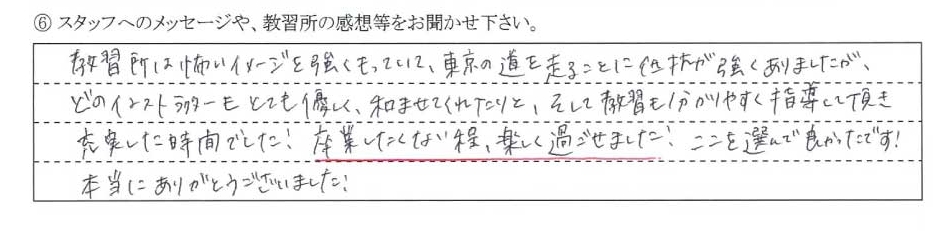 ⑥ スタッフへのメッセージや、教習所の感想等をお聞かせ下さい。
教習所は怖いイメージを強くもっていて、東京の道を走ることに抵抗が強くありましたが、
どのインストラクターもとても優しく、和ませてくれたりと、そして教習も分かりやすく指導して頂き
充実した時間でした! 卒業したくない程、楽しく過ごせました! ここを選んで良かったです!
本当にありがとうございました!